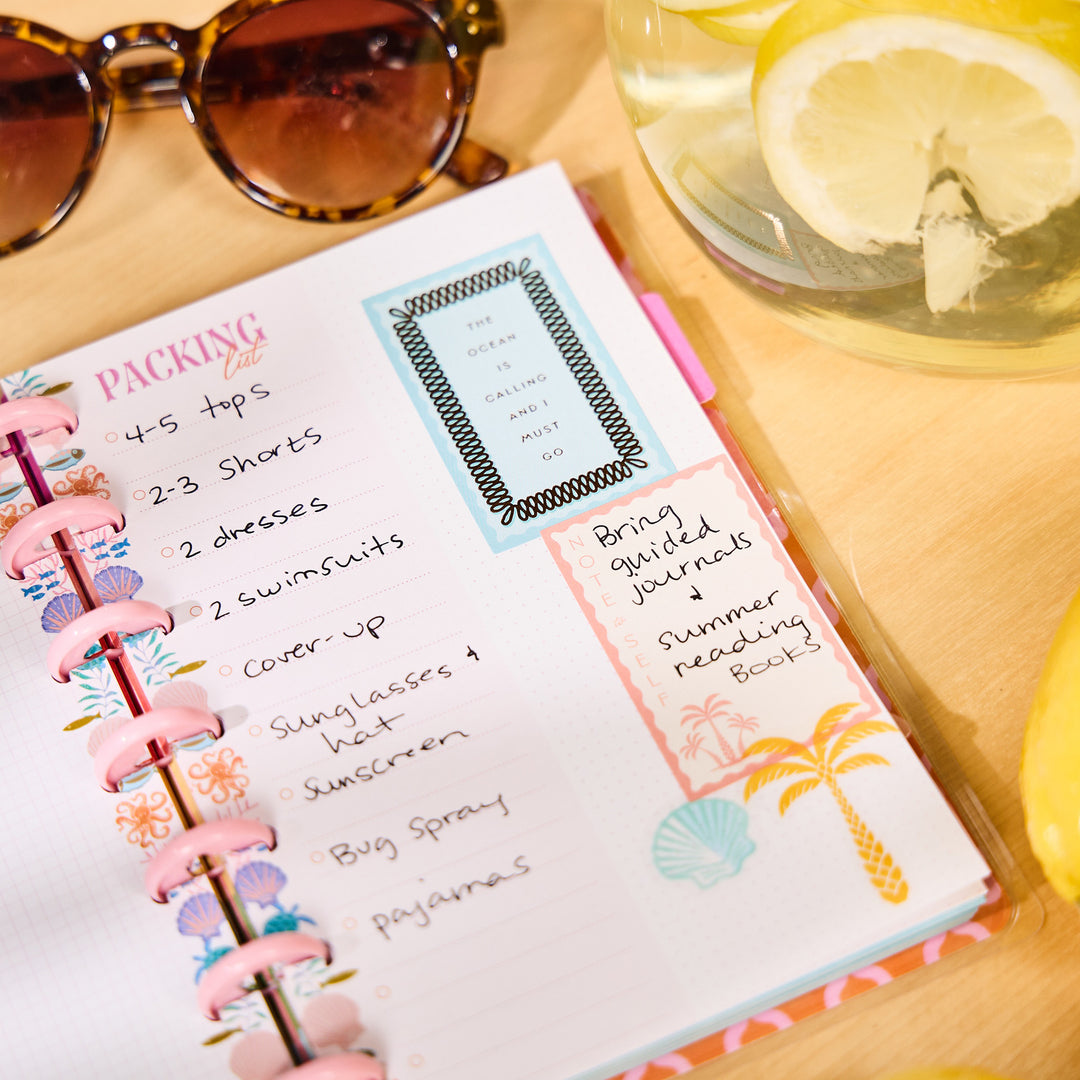 PACKING
list
4-5 tops
2-3 Shorts
2 dresses
2 swimsuits
Cover-up
Sunglasses &
hat
Sunscreen
Bug Spray
pajamas
THE
OCEAN
IS
CALLING
AND I
MUST
GO
NOTE to SELF
Bring
guided
journals
&
summer
reading
Books